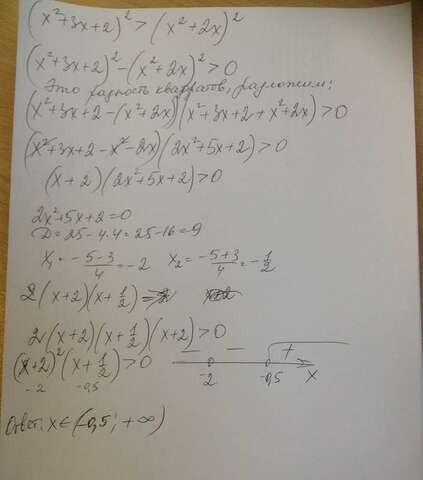 (x²+3x+2)² > (x²+2x)²
(x²+3x+2)² - (x²+2x)² > 0
Это разность квадратов, разложим:
(x²+3x+2 - (x²+2x))(x²+3x+2 + x²+2x) > 0
(x²+3x+2 - x² - 2x)(2x²+5x+2) > 0
(x+2)(2x²+5x+2) > 0
2x²+5x+2=0
D = 25 - 4·4 = 25-16 = 9
x₁ = -5-3/4 = -2 x₂ = -5+3/4 = -1/2
2(x+2)(x+1/2)
2(x+2)(x+1/2)(x+2) > 0
(x+2)²(x+1/2) > 0 — — +
-2 -0,5 -2 -0,5 x
Ответ: x ∈ (-0,5; +∞)